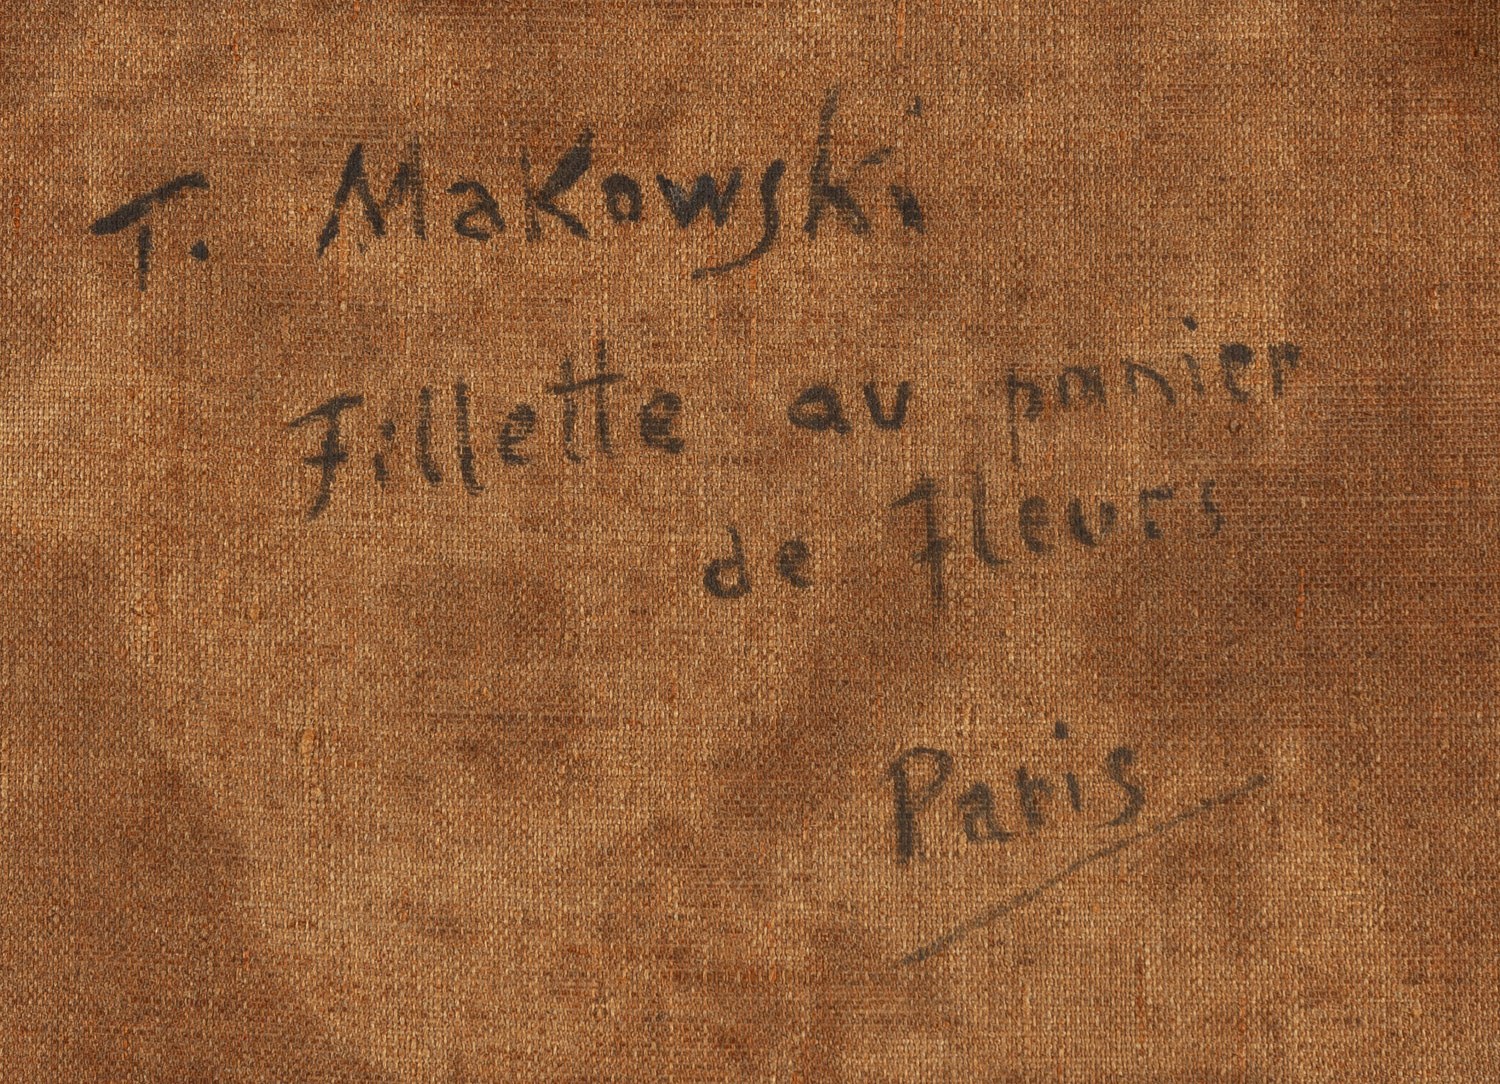 T. Makowski
Fillette au panier
de fleurs
Paris